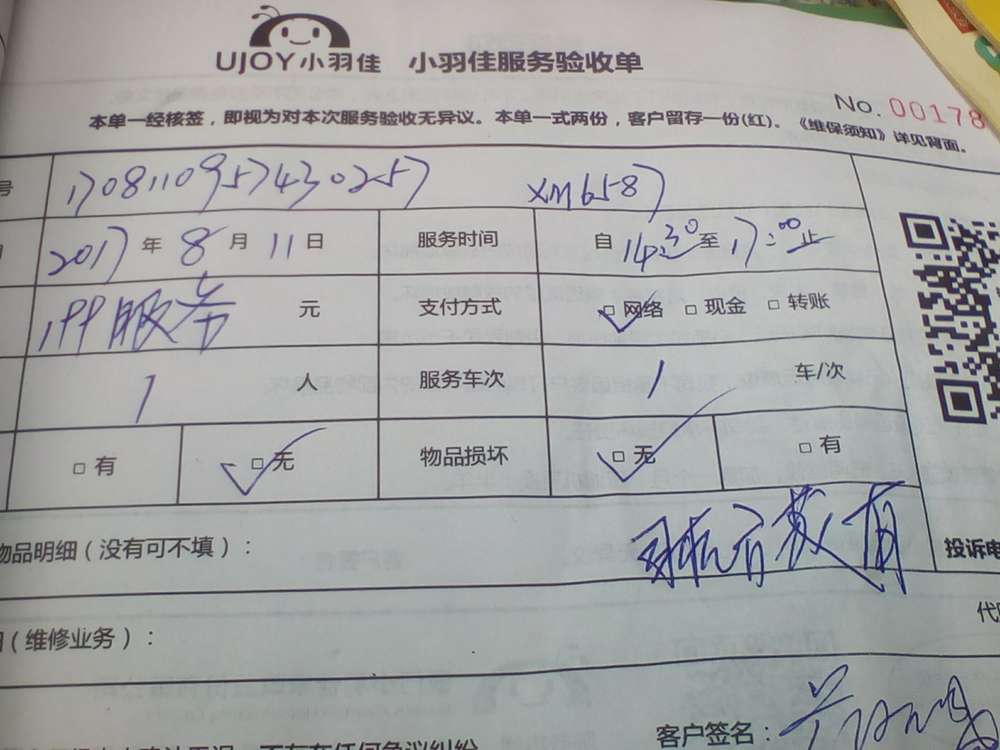 UJOY小羽佳 小羽佳服务验收单
No. 00178
本单一经核签，即视为对本次服务验收无异议。本单一式两份，客户留存一份(红)。《维保须知》详见背面。
号 1708110957430257 XM6587
2017年8月11日 服务时间 自14:30至17:00止
服务 元 支付方式 □网络 □现金 □转账
1 人 服务车次 1 车/次
□有 □无 物品损坏 □无 □有
物品明细（没有可不填）：
投诉电
（维修业务）：
客户签名：